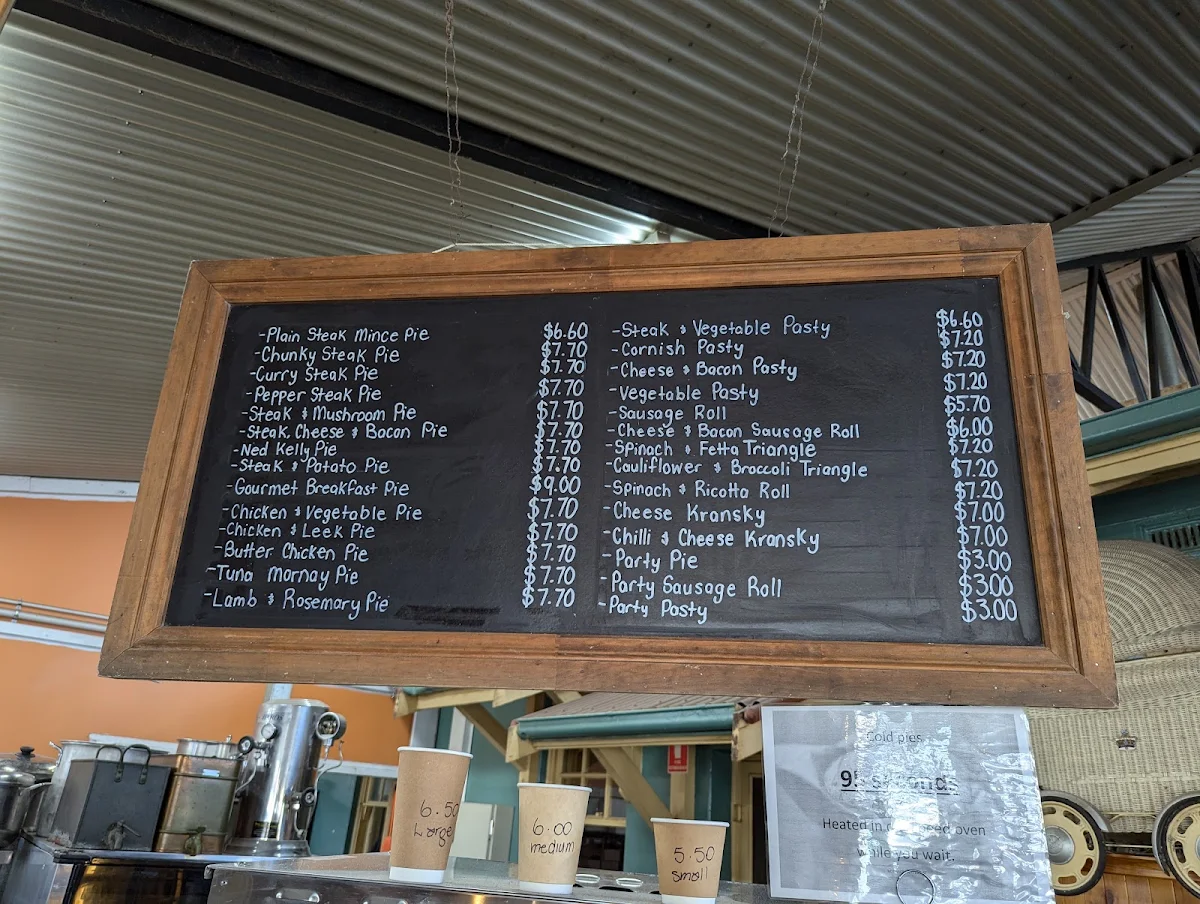 -Plain Steak Mince Pie $6.60
-Chunky Steak Pie $7.70
-Curry Steak Pie $7.70
-Pepper Steak Pie $7.70
-Steak & Mushroom Pie $7.70
-Steak, Cheese & Bacon Pie $7.70
-Ned Kelly Pie $7.70
-Steak & Potato Pie $7.70
-Gourmet Breakfast Pie $9.00
-Chicken & Vegetable Pie $7.70
-Chicken & Leek Pie $7.70
-Butter Chicken Pie $7.70
-Tuna Mornay Pie $7.70
-Lamb & Rosemary Pie $7.70
-Steak & Vegetable Pasty $6.60
-Cornish Pasty $7.20
-Cheese & Bacon Pasty $7.20
-Vegetable Pasty $7.20
-Sausage Roll $5.70
-Cheese & Bacon Sausage Roll $6.00
-Spinach & Fetta Triangle $7.20
-Cauliflower & Broccoli Triangle $7.20
-Spinach & Ricotta Roll $7.20
-Cheese Kransky $7.00
-Chilli & Cheese Kransky $7.00
-Party Pie $3.00
-Party Sausage Roll $3.00
-Party Pasty $3.00
6.50
Large
6.00
medium
5.50
small
Cold pies
seconds
Heated in speed oven
while you wait.